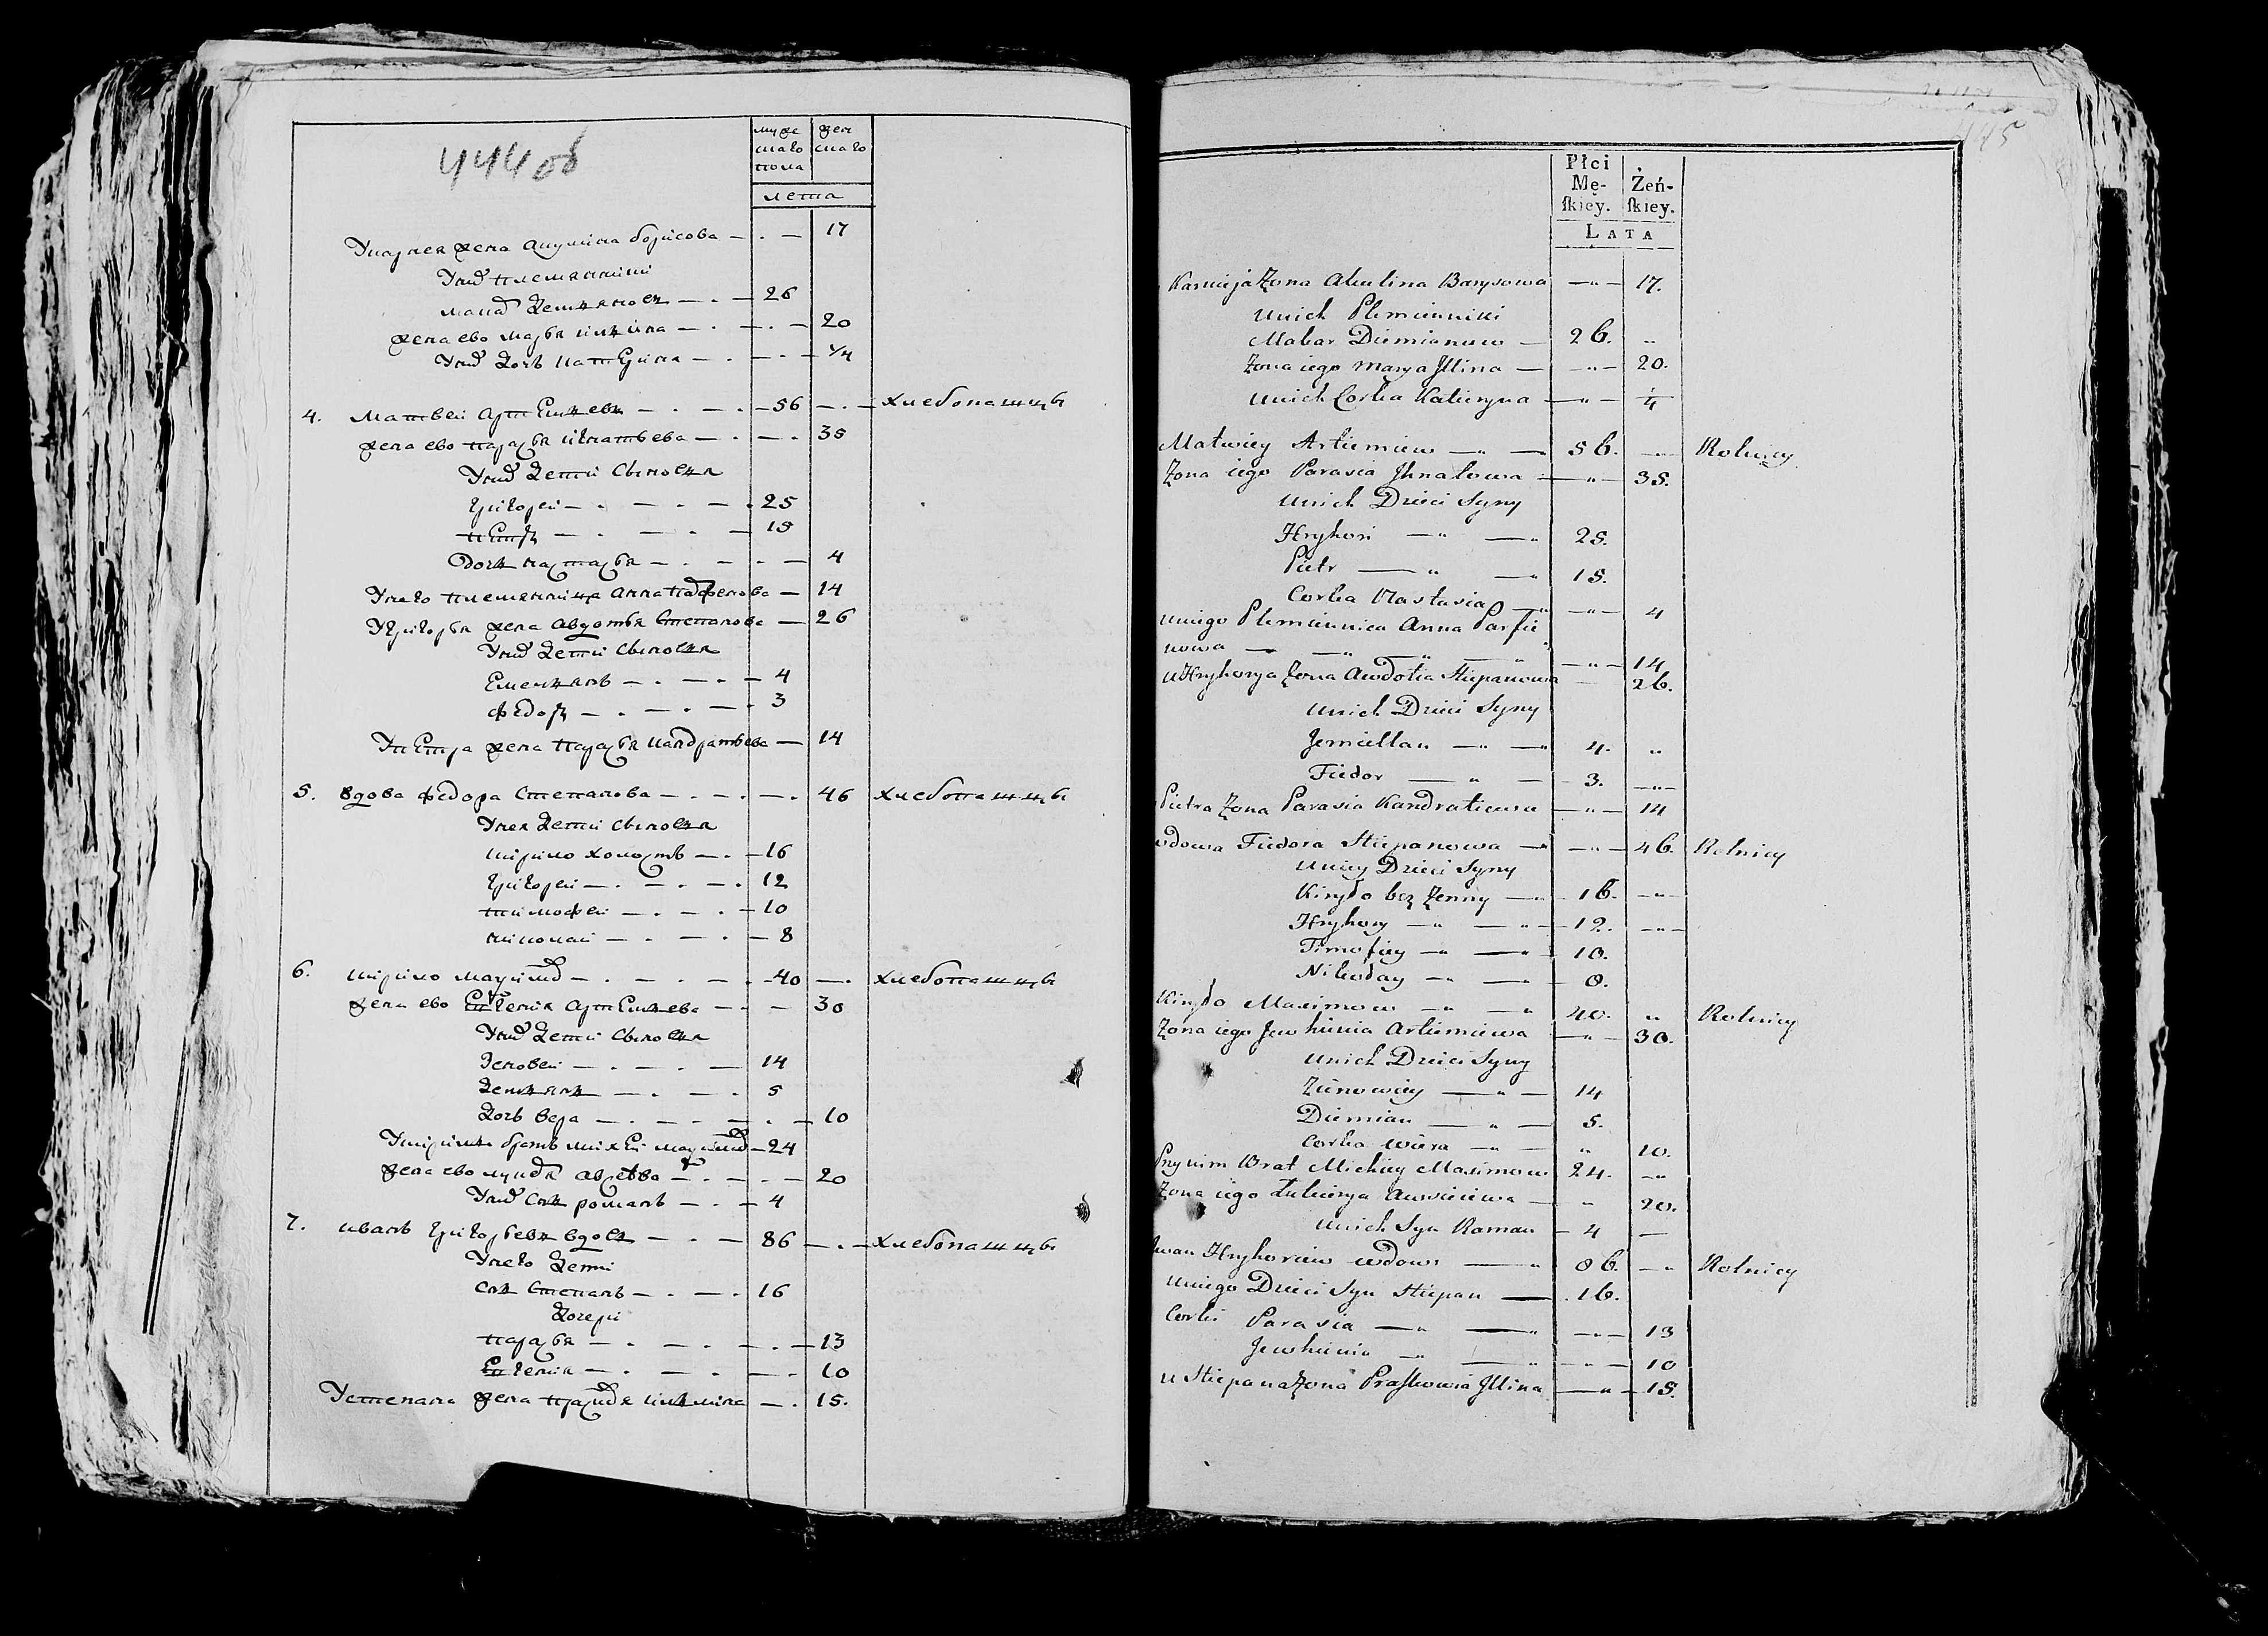 444 об
муже
скаго
пола
жен
скаго
лета
Укарнея жена акулина борисова — . — 17
Уних племянники
макар демьянов — . — 26
жена ево марья ильина — . — . — 20
Уних дочь катерина — . — . — 1/4
4. Матвей артемьев — . — . — 56 — . — хлебопашцы
жена ево парасья игнатьева — . — . 35
Уних дети сыновья
григорей — . — . — . 25
петр — . — . — 15
Дочь настасья — . — . — 4
Унего племянница анна парфенова — 14
Угригорья жена авдотья степанова — 26
Уних дети сыновья
Емельянъ — . — . — 4
федор — . — . — . 3
Упетра жена парасья кандратьева — 14
5. вдова федора степанова — . — . — . 46 хлебопашцы
Унея дети сыновья
кирило холостъ — . — 16
григорей — . — . — . 12
тимофей — . — . — 10
николай — . — . — 8
6. кирило максимов — . — . — . — 40 — . хлебопашцы
жена ево евгения артемьева — . — 30
Уних дети сыновья
Зеновей — . — . — 14
демьян — . — . 5
дочь вера — . — . — . — 10
Укирилы братъ михей максимов — 24
жена ево лукерья авсеева — . — . — 20
Уних сын романъ — . — 4
7. иванъ григорьев вдов — . — 86 — . — хлебопашцы
Унего дети
сын степанъ — . — . 16
дочери
парасья — . — . — . — 13
Евгения — . — . — . 10
Устепана жена прасковья ильина — . 15.
445
Płci
Mę-
ſkiey.
Żeń-
ſkiey.
LATA
Karnieja Żona Akulina Barysowa — " — 17.
Unich Plemienniki
Makar Diemianow — 26. "
Żona iego Marya Jllina — — " — 20.
Unich Corka Kateryna — " — 1/4
Matwiey Artiemiew — " — 56. — " — Rolnicy
Żona iego Parasia Jhnatowa — " — 35.
Unich Dzieci Syny
Hryhori — " — " 25.
Pietr — " — " 15.
Corka Nastasia — " — " — 4
Uniego Plemiennica Anna Parfie
nowa — " — " — " — " — 14
u Hryhorya Żona Awdotia Stiepanowa — 26.
Unich Dzieci Syny
Jemiellan — " — " 4. "
Fiedor — " — 3. — " —
Pietra Żona Parasia Kandratiewa — " — 14
wdowa Fiedora Stiepanowa — — " — 46. Rolnicy
Uniey Dzieci Syny
Kiryło bez Żenny — " 16. — " —
Hryhory — " — " — 12. — " —
Timofiey — " — " 10.
Nikołay — " — " 8.
Kiryło Maximow — " — " 40. " Rolnicy
Żona iego Jewhinia Artiemiewa — " — 30.
Unich Dzieci Syny
Zienowiey — " — 14
Diemian — " — 5.
Corka Wiera — " — " 10.
Przynim Brat Michiey Maximow 24. — " —
Żona iego Łukierya Auwsieiewa — " 20.
Unich Syn Roman — 4 —
Jwan Hryhoriew wdow — " 86. — " Rolnicy
Uniego Dzieci Syn Stiepan — 16.
Corki Parasia — " — " — " — 13
Jewhinia — " — " — " — 10
u Stiepana Żona Praskowia Jllina — " — 15.